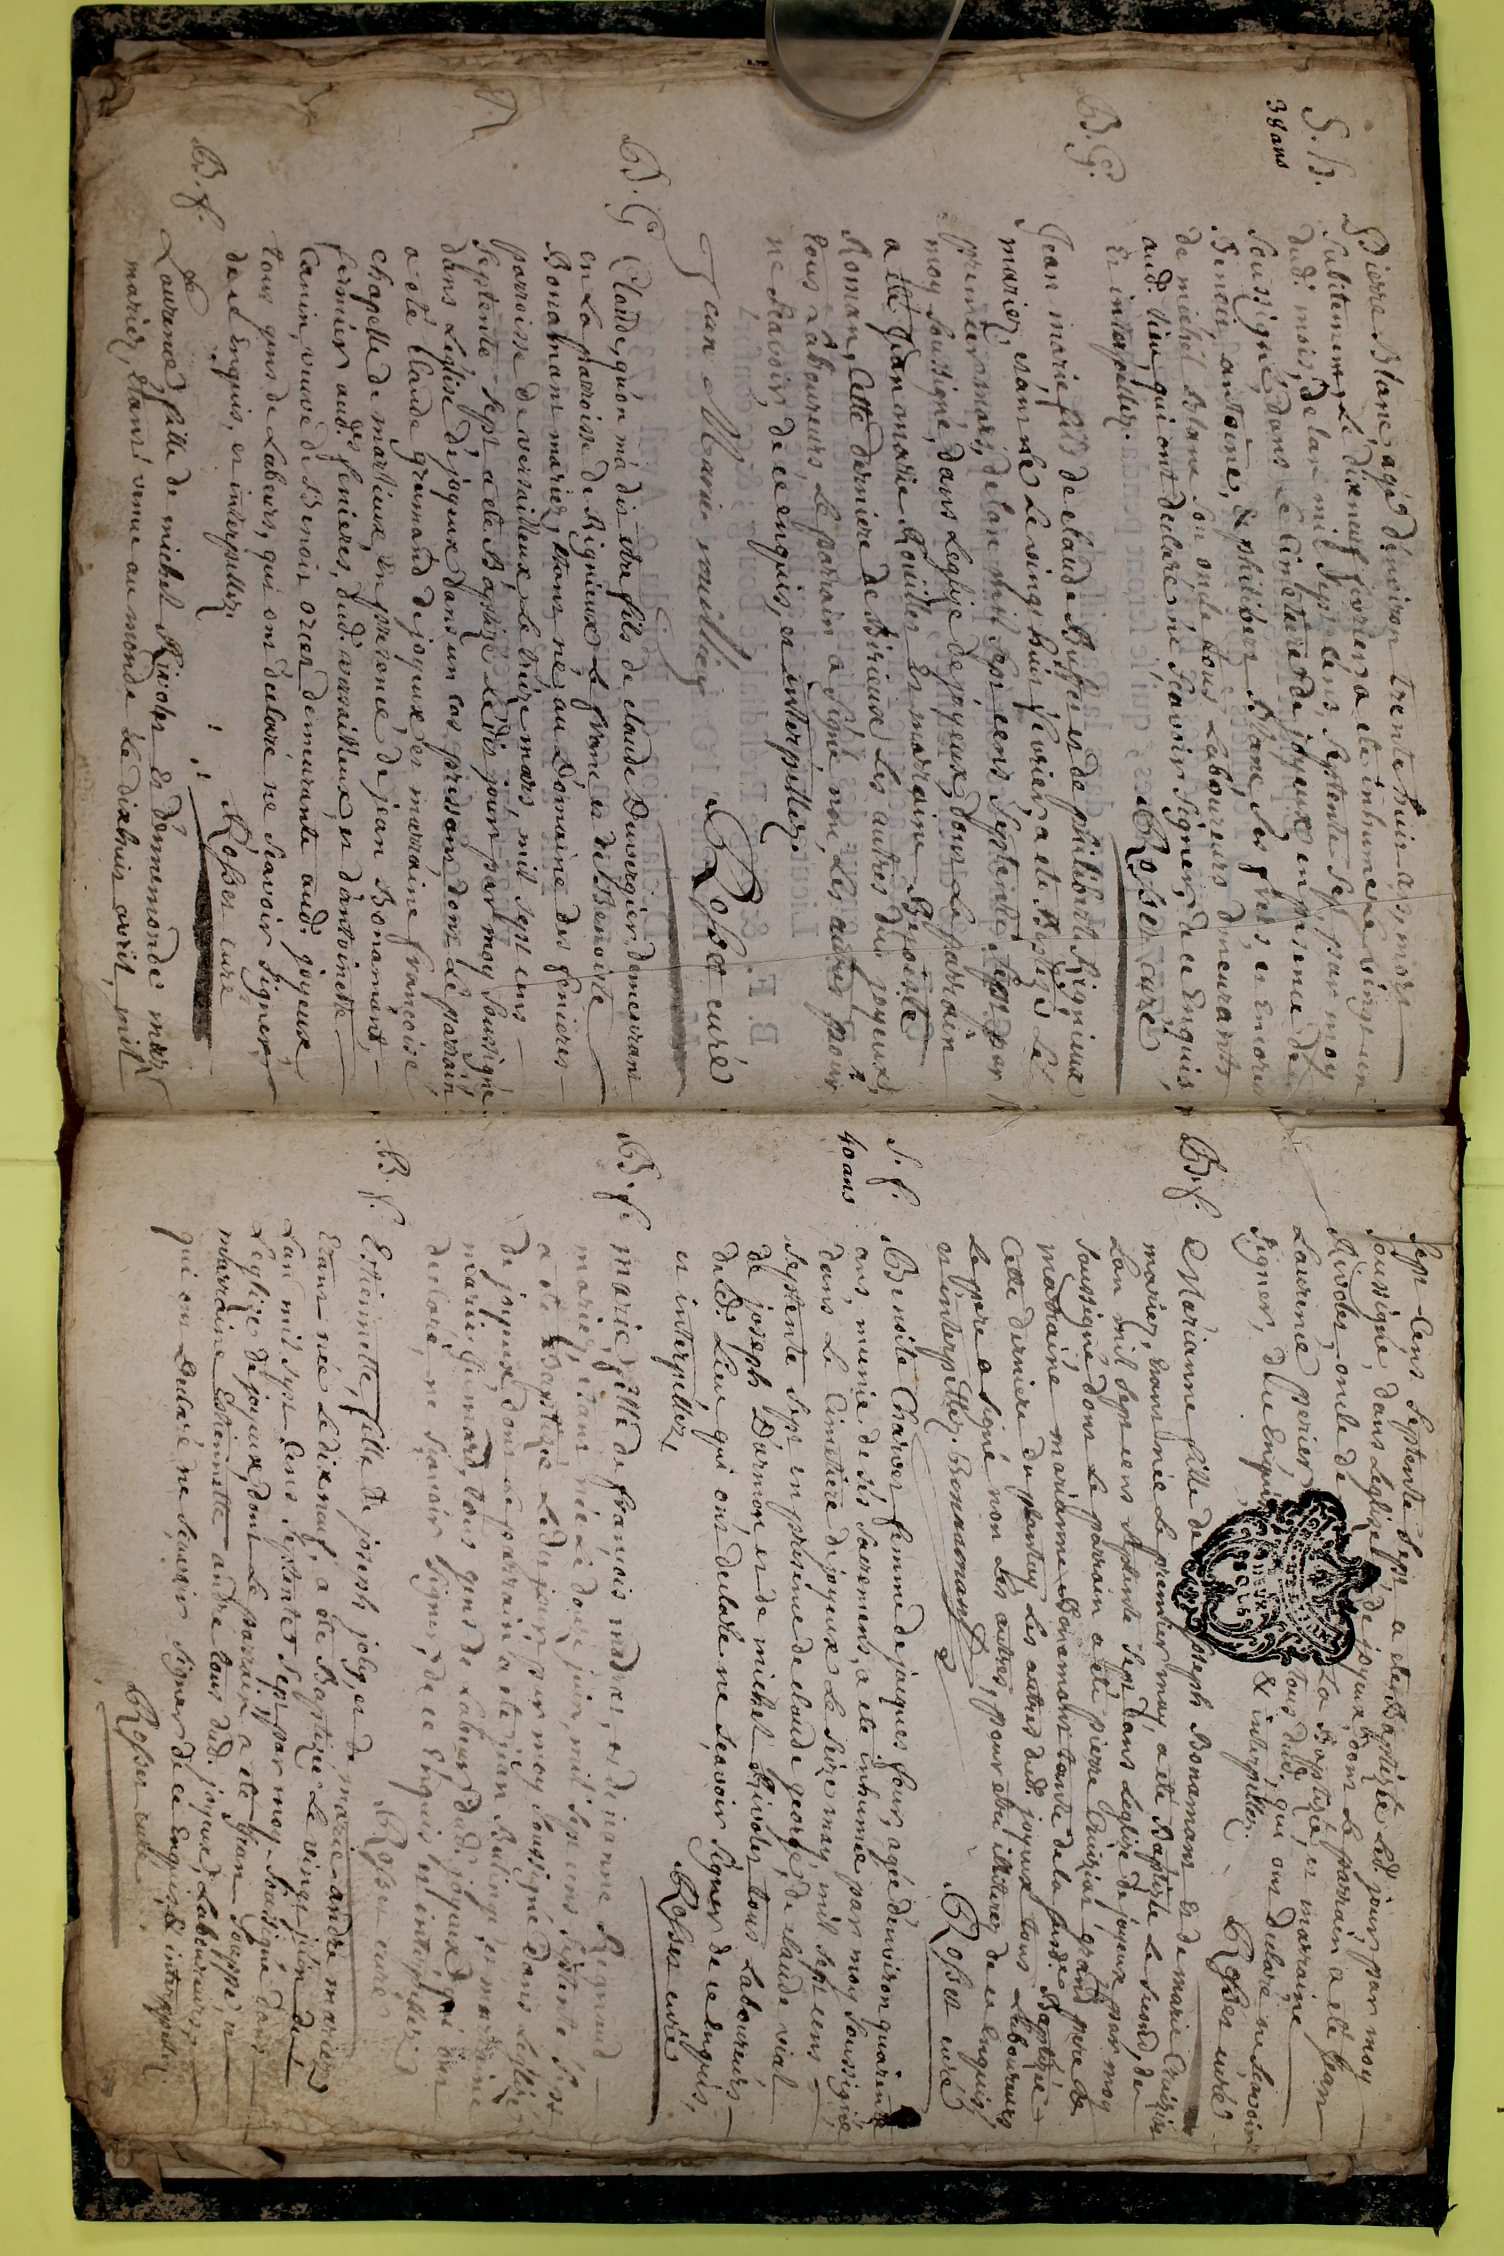 S. h.
38 ans
Pierre Blanc, agé d'environ trente huit ans, mort
subitement, Le dixneuf fevrier a ete inhumé le vingt un
dud. mois, de lan mil sept cens septente sept, par moy
soussigné, dans Le Cimetiere de joyeux en presence de
Benoit, antoine, & philibert Blanc ses freres et encore
de michel Blanc son oncle tous Laboureurs demeurants
aud. lieu, qui ont declaré ne scavoir signer, de ce enquis
et interpellez.
Rosset curé
B. G.
Jean marie fils de claude Buffet et de philiberte Rignieux
mariez, etant né Le vingt huit fevrier, a ete Baptizé Le
premier mars, de lan mil sept cens septente sept, par
moy soussigné, dans Leglise de joyeux, dont Le parrain
a été Jean marie Rouiller et marraine Benoiste
Roman, Cette derniere de Birieux Les autres dud. joyeux,
tous Laboureurs Le parrain a signé non Les autres pour
ne scavoir, de ce enquis, et interpellez.
Jean Marie rouillier
Rosset curé
B. G
Claude, qu'on m'a dit etre fils de claude Duvergier, demeurant
en La parroisse de Rignieux Le franc et de Benoiste
Bonamant mariez, etant né, au Domaine des fenieres
parroisse de versailleux Le treize mars, mil sept cens
septente sept a ete Baptizé Ledit jour par moy soussigné
dans Leglise de joyeux dans un cas pressant, dont Le parrain
a ete Claude grumand de joyeux et marraine francoise
chapelle de marlieux, en presence de jean Bonamant,
fermier aud. fenieres, dud. versailleux, et d'antoinette
Canin, veuve de Benoit orcet demeurante aud. joyeux
tous gens de Labeurs, qui ont declaré ne scavoir signer,
de ce enquis, et interpellez
Rosset curé
B. f.
Laurence fille de michel Rivolet et d'ennemonde
mariez, etant venue au monde Le dixhuit avril, mil
sept cens septente sept a ete Baptizée Led. jour, par moy
soussigné, dans Leglise de joyeux, dont Le parrain a ete Jean
Rivolet oncle de La Baptizée, et marraine
Laurence perier tous dud. qui ont declaré ne scavoir
signer, de ce enquis & interpellez.
Rosset curé
B. f.
Marianne fille de joseph Bonamant et de marie Cuizin
mariez, etant née Le premier may, a ete Baptizée Le second, de
Lan mil sept cens septente sept dans Leglise de joyeux par moy
soussigné, dont Le parrain a ete pierre Cuizin grand pere &
marraine marianne Bonamant tante de la Baptizée
Cette derniere du plantay Les autres dud. joyeux tous Laboureurs
Le pere a signé non Les autres, pour etre illiterez de ce enquis
et interpellez. Bonnamant
Rosset curé
S. f.
40 ans
Benoite Charvet femme de jacques four, agée d'environ quarente
ans, munie de ses sacremens, a ete inhumée par moy soussigné
dans Le Cimetiere de joyeux Le seize may, mil sept cens
septente sept en presence de claude george, de claude vial
de joseph Darmon, et de michel Rivolet tous Laboureurs
dud. Lieu qui ont declaré ne scavoir signer de ce enquis,
et interpellez,
Rosset curé
B. f.
marie, fille de francois nadra, et de jeanne Regnaud
mariez, etant née Le douze juin, mil sept cens septente sept
a ete Baptizée Ledit jour, par moy soussigné dans Leglise
de joyeux, dont Le parrain a ete jean Bulinge, et marraine
marie tous gens de Labeur dud. joyeux qui ont
declaré, ne scavoir signer, de ce enquis et interpellez
Rosset curé
B. f.
Estiennette, fille de joseph joly, et de marie andré mariez
etant née Le dixneuf, a ete Baptizée Le vingt juin de
Lan mil sept cens septente sept par moy soussigné dans
Leglise de joyeux, dont Le parrain a ete jean Souppé et
marraine Estiennette andré tous dud. joyeux, Laboureurs,
qui ont declaré ne scavoir signer de ce enquis & interpellez.
Rosset curé